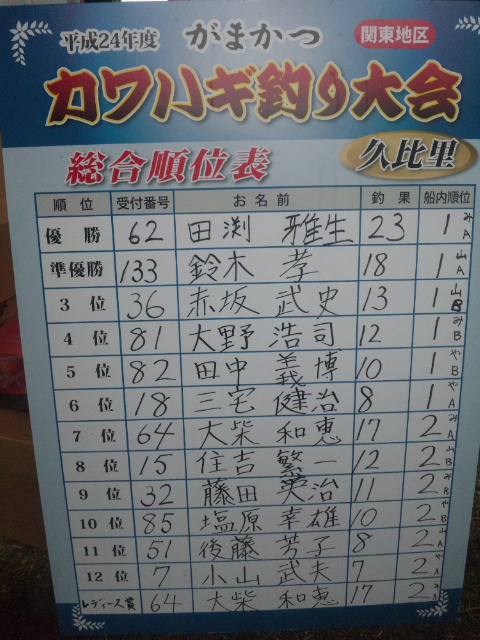 平成24年度 がまかつ 関東地区
カワハギ釣り大会
総合順位表 久比里
順位 受付番号 お名前 釣果 船内順位
優勝 62 田渕 雅生 23 1 みA
準優勝 133 鈴木 孝 18 1 山A
3位 36 赤坂 武史 13 1 山B
4位 81 大野 浩司 12 1 みB
5位 82 田中 義博 10 1 やB
6位 18 三宅 健治 8 1 やA
7位 64 大柴 和恵 17 2 みA
8位 15 住吉 繁一 12 2 山B
9位 32 藤田 英治 11 2 みB
10位 85 塩原 幸雄 10 2 やB
11位 51 後藤 芳子 8 2 山A
12位 7 小山 武夫 7 2 やA
レディース賞 64 大柴 和恵 17 2 みA